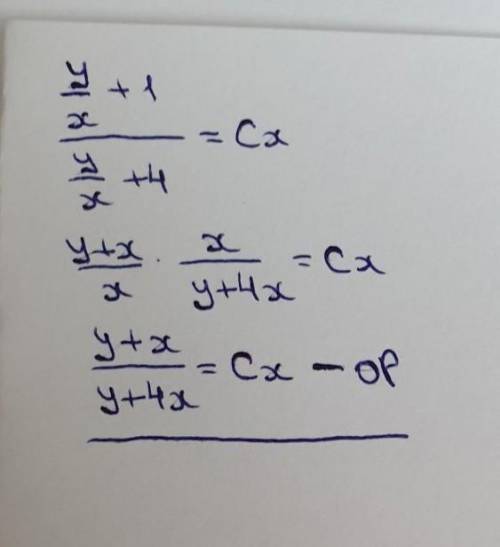 (y/x + 1)/(y/x + 4) = Cx
(y+x)/x · x/(y+4x) = Cx
(y+x)/(y+4x) = Cx – ОР